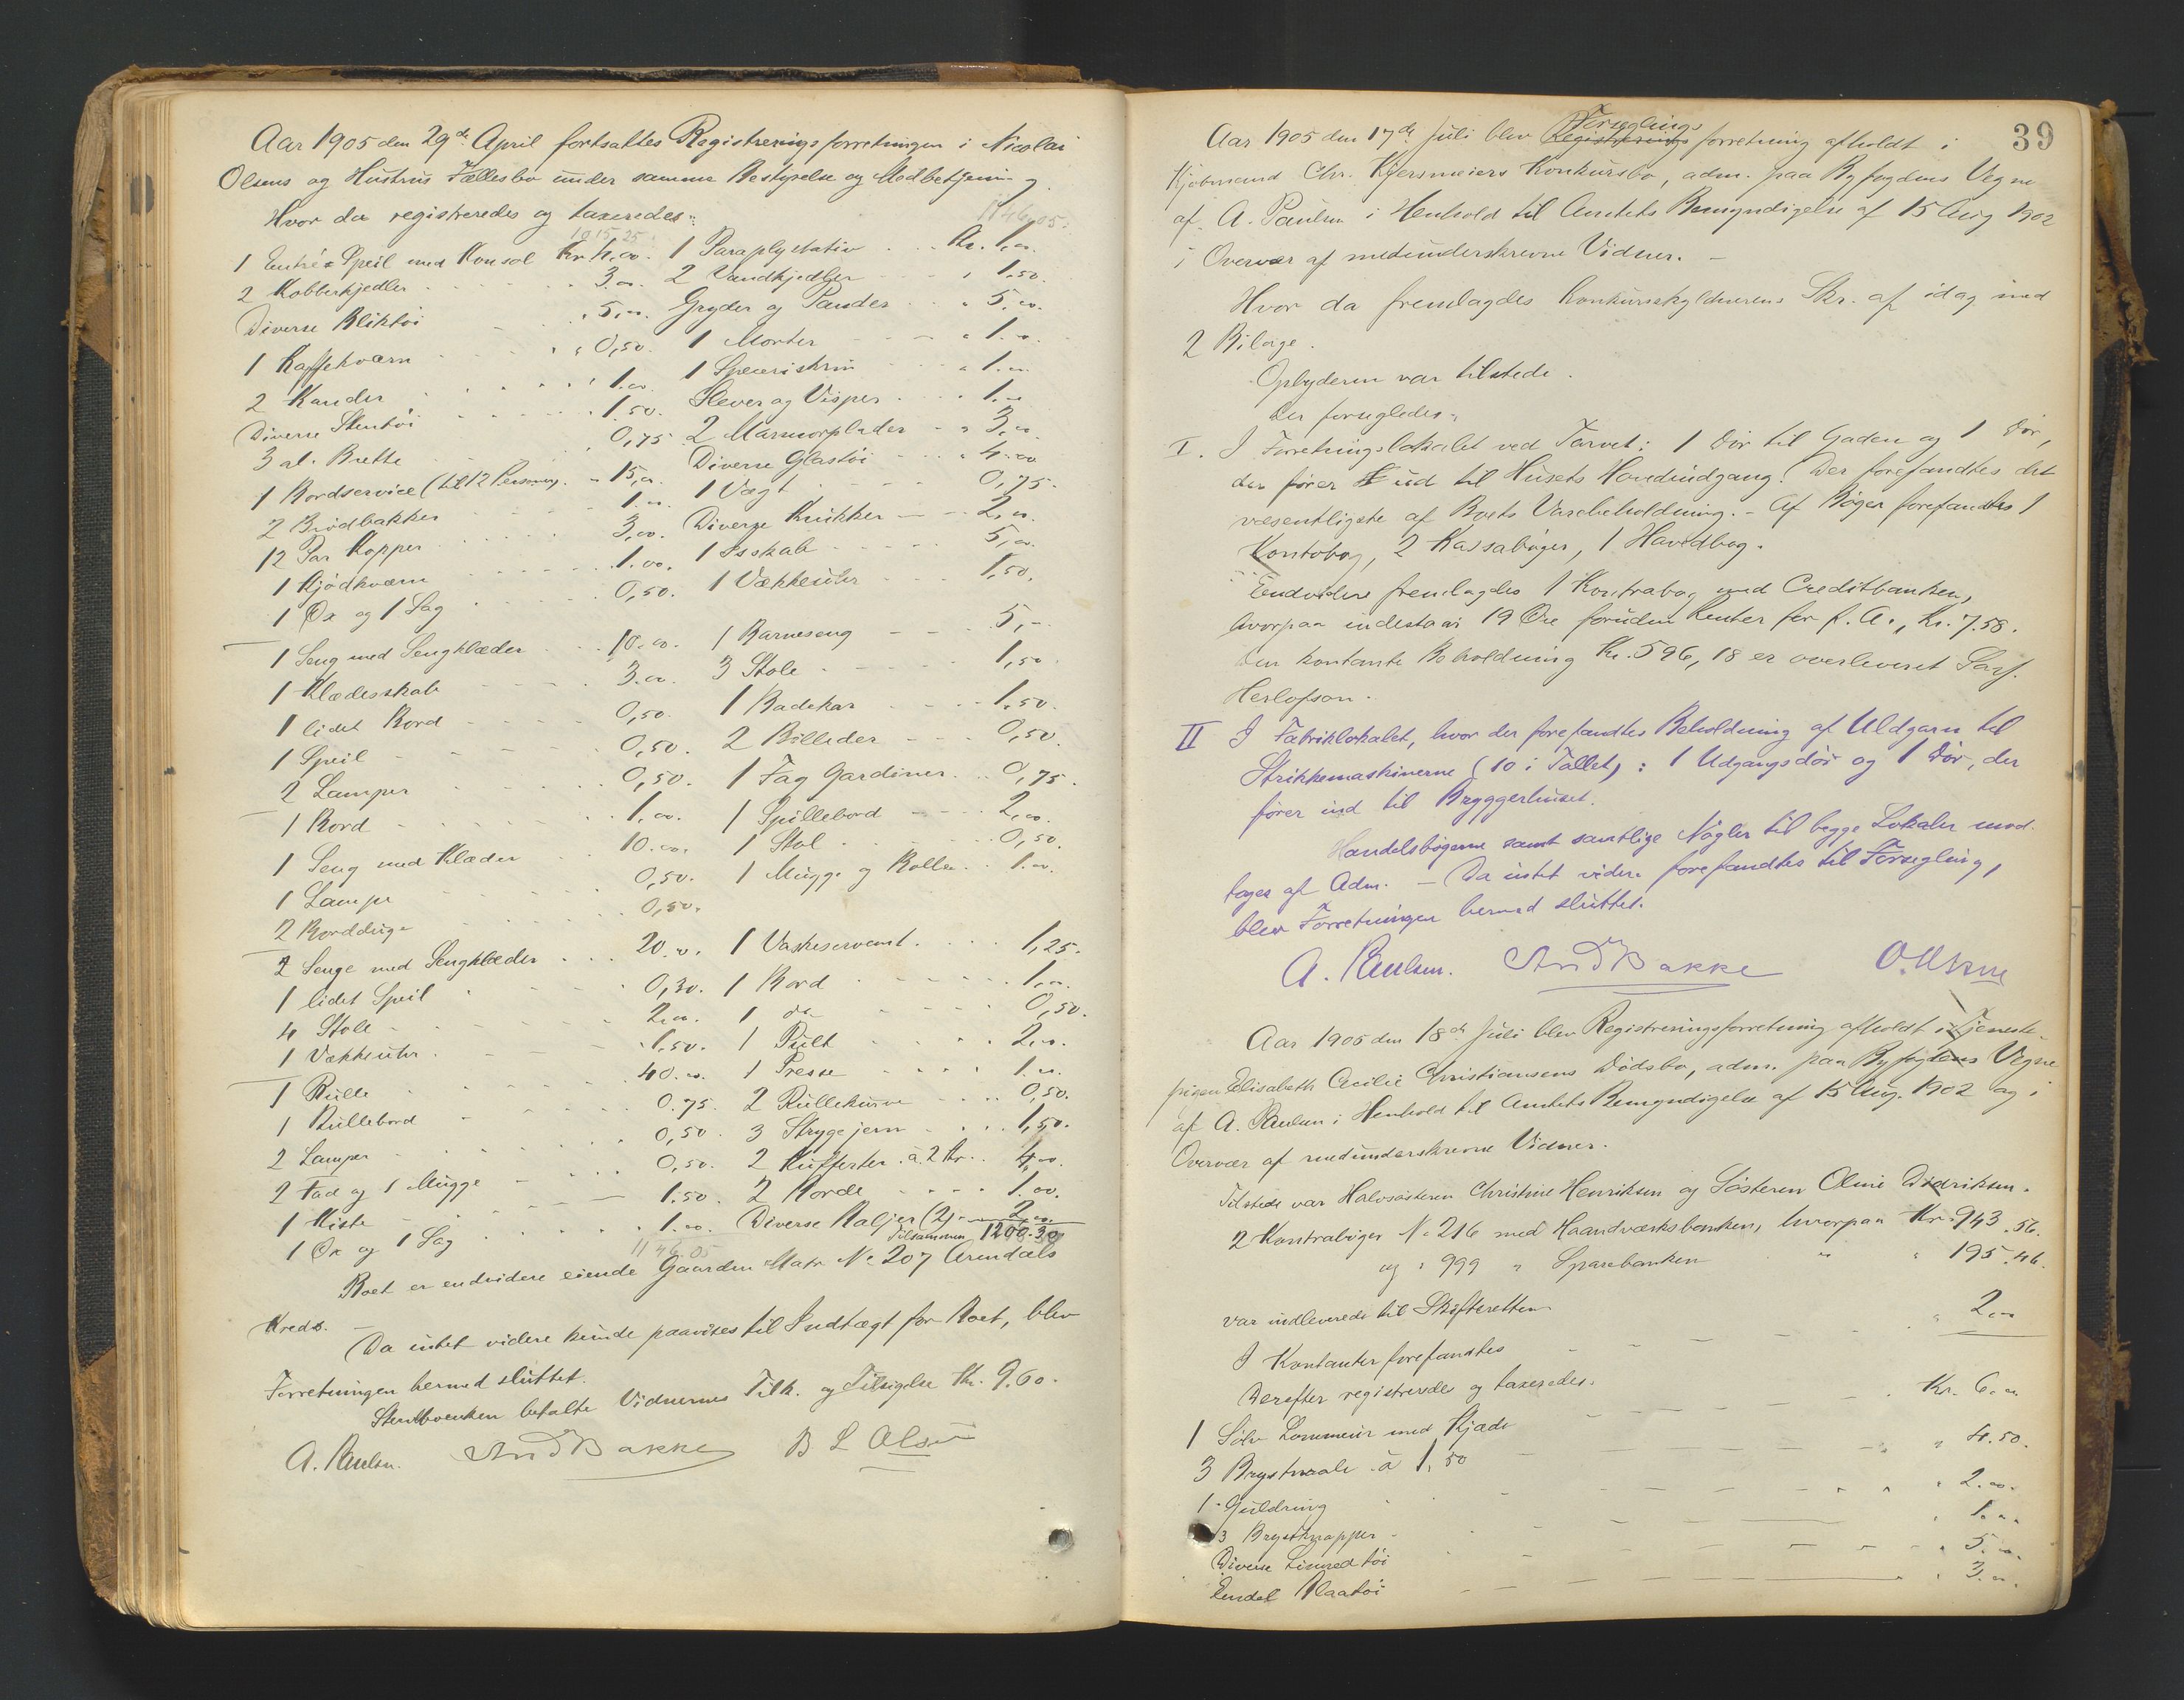 Aar 1905 den 29de April fortsattes Registreringsforretningen i Nicolai
Olsens og Hustrus Fællesbo under samme Bestyrelse og Medbetjening
Hvor da registreredes og taxeredes:
1015.25 1146,05.
1 Entré Speil med Konsol Kr. 4,00. 1 Paraplystativ . . . Kr. 1,00.
2 Kobberkjedler . . . . 3,00. 2 Vandkjedler . . . " 1.50.
Diverse Bliktøi . " 5,00. Gryder og Pander . . " 5,00.
1 Kaffekværn . . . . " 0,50. 1 Morter - - - " 1.00.
2 Kander . . . . . . 1.00. 1 Speceriskrin . . . " 1.00.
Diverse Stentøi . . . . 1.50. Slever og Visper . . . . 1.00
3 al. Brette . . . . 0,75 2 Marmorplader - " 3,00.
1 Bordservice (til 12 Personer). - 15,00. Diverse Glastøi . . . " 4.00
2 Brødbakker . . . . 1.00. 1 Vægt - - - - 0,75.
12 Par Kopper . . . . . 3,00. Diverse Krukker — - - 2,00.
1 Kjødkværn . . . . . 1.00. 1 Isskab . . . . . 5,00.
1 Øx og 1 Sag . . . . 0,50. 1 Vækkeuhr . . . 1,50.
1 Seng med Sengklæder . . . 10.00. 1 Barneseng - - - 5,-
1 Klædesskab - - - - 3.00. 3 Stole - - - - 1,50
1 lidet Bord - - - - 0,50. 1 Badekar - - - - 1.50.
1 Speil - - - - - 0,50. 2 Billeder - - - 0,50.
2 Lamper . . . . . 0,50. 1 Fag Gardiner . . . 0,75.
1 Bord - - - - - 1,00. 1 Spillebord - - - 2,00.
1 Seng med Klæder . . 10.00. 1 Stol . . . . . 0,50.
1 Lampe . . . . . 0,50. 1 Mugge og Bolle . . 1.00.
2 Bordduge . . . . 0,50.
2 Senge med Sengklæder . . . 20.00. 1 Vaskeservant . . . . 1,25.
1 lidet Speil . . . . 0,30. 1 Bord - - - - - 1,00.
4 Stole - - - - - 2,00. 1 do - - - - 0,50.
1 Vækkeuhr . . . . 1.50. 1 Pult . . . . . 2.00.
1 Rulle . . . . . 40.00. 1 Presse . . . . 1.00.
1 Rullebord - - - - 0.75. 2 Rullekurve . . . . 0,50.
2 Lamper . . . . . 0,50. 3 Strygejern . . . . 1,50.
2 Fad og 1 Mugge - . . . 0,50. 2 Kufferter . à 2 Kr . . 4,00.
1 Kiste - - - - — 1.50. 2 Borde - - - - 1.00.
1 Øx og 1 Sag . . . . . 1.00. Diverse Baljer (2) . — 2,00.
1146.05 Tilsammen 1200.30
Boet er endvidere eiende Gaarden Matr No 207 Arendals
Kreds. —
Da intet videre kunde paavises til Indtægt for Boet, blev
Forretningen hermed sluttet.
Stervboenken betalte Vidnernes Tilk. og Tilsigelse Kr. 9.60.
A. Paulsen. And Bakke B L Olsen
39
Forseglings
Aar 1905 den 17de Juli blev Registreringsforretning afholdt i
Kjøbmand Chr. Kjersmeiers Konkursbo, adm. paa Byfogdens Vegne
af A. Paulsen i Henhold til Amtets Bemyndigelse af 15 Aug 1902
i Overvær af medunderskrevne Vidner. —
Hvor da fremlagdes Konkursskyldnerens Skr. af idag med
2 Bilage.
Opbyderen var tilstede.
Der forsegledes:
I. I Forretningslokalet ved Torvet: 1 Dør til Gaden og 1 Dør,
der fører ud til Husets Hovedindgang. Der forefandtes det
væsentligste af Boets Varebeholdning. - Af Bøger forefandtes 1
Kontobog, 2 Kassabøger, 1 Havedbog.
Endvidere fremlagdes 1 Kontrabog med Creditbanken,
hvorpaa indestaar 19 Øre foruden Renter for f. A., Kr. 7.58.
Den kontante Beholdning Kr. 596,18 er overleveret Sagf.
Herlofson.
II I Fabriklokalet, hvor der forefandtes Beholdning af Uldgarn til
Strikkemaskinerne (10 i Tallet): 1 Udgangsdør og 1 Dør, der
fører ind til Bryggerhuset.
Handelsbøgerne samt samtlige Nøgler til begge Lokaler mod-
tages af Adm. — Da intet videre forefandtes til Forsegling,
blev Forretningen hermed sluttet.
A. Paulsen. And Bakke
Aar 1905 den 18de Juli blev Registreringsforretning afholdt i Tjeneste-
pigen Elisabeth Cecilie Christiansens Dødsbo, adm. paa Byfogdens Vegne
af A. Paulsen i Henhold til Amtets Bemyndigelse af 15 Aug. 1902 og i
Overvær af medunderskrevne Vidner.
Tilstede var Halvsøsteren Christine Henriksen og Søsteren Oline Didriksen.
2 Kontrabøger No 216 med Haandværksbanken, hvorpaa Kr. 943.56.
og " 999 " Sparebanken " " 195.46.
var indleverede til Skifteretten.
I Kontanter forefandtes - - — — - - " 2,00
Derefter registreredes og taxeredes:
1 Sølv Lommeur med Kjæde — — — — — Kr. 6.00
3 Brystnaale à 1,50 — — — — — " 4.50.
1 Guldring . . - — — — " " 2.00.
3 Brystknapper - . . — — " 1.00
Diverse Linnedtøi - - — — — - " 5.00.
Endel Blaatøi — — — — " 3.00.